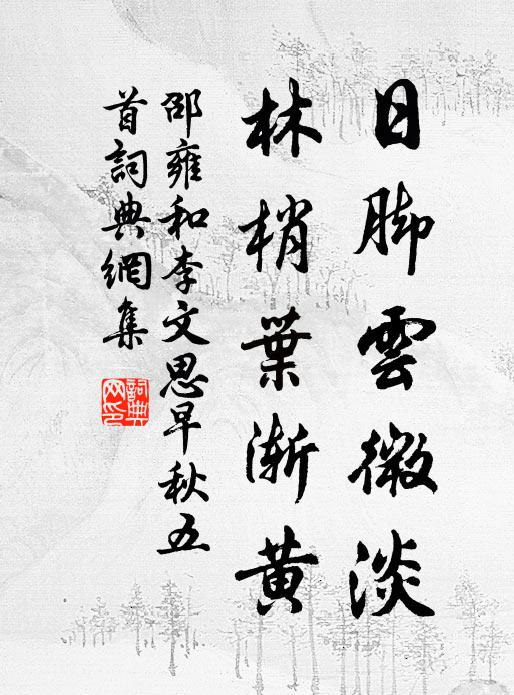 日脚雲微淡
林梢葉漸黄
邵雍和李文思早秋五
首詞典網集
詞典
网印